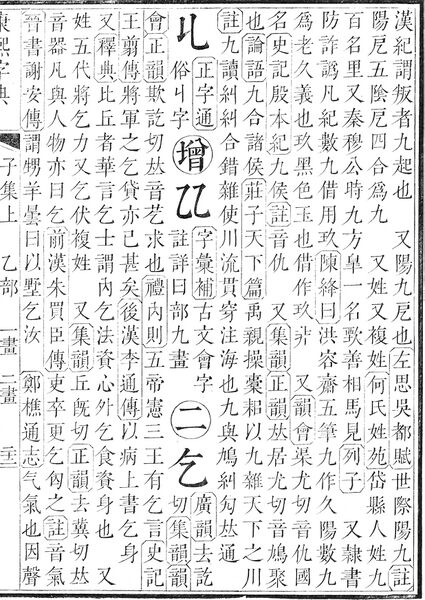 漢紀謂叛者九起也 又陽九戹也左思吳都賦世際陽九註
陽戹五陰戹四合爲九 又姓又複姓何氏姓苑岱縣人姓九
百名里又秦穆公時九方臯一名歅善相馬見列子 又隸書
防詐譌凡紀數九借用玖陳繹曰洪容齋五筆九作久陽數九
爲老久義也玖黑色玉也借作玖非 又韻會渠尤切音仇國
名史記殷本紀九侯註音仇 又集韻正韻𠀤居尤切音鳩聚
也論語九合諸侯莊子天下篇禹親操橐耜以九雜天下之川
註九讀糾糾合錯雜使川流貫穿注海也九與鳩糾勼𠀤通
正字通俗丩字 增 字彙補古文會字註詳曰部九畫 二 乞 廣韻去訖切集韻韻
會正韻欺訖切𠀤音芞求也禮內則五帝憲三王有乞言史記
王翦傳將軍之乞貸亦已甚矣後漢李通傳以病上書乞身
又釋典比丘者華言乞士謂內乞法資心外乞食資身也 又
姓五代將乞力 又乞伏複姓 又集韻丘旣切正韻去冀切𠀤
音器凡與人物亦曰乞前漢朱買臣傳吏卒更乞匄之註音氣
晉書謝安傳謂甥羊曇曰以墅乞汝 鄭樵通志气氣也因聲
康熙字典 子集上 乙部 一畫 二畫